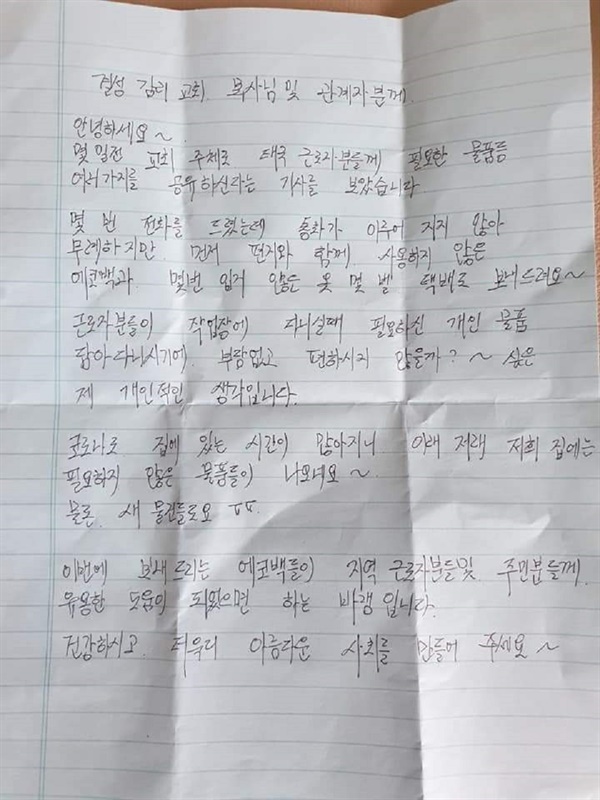 결성 감리 교회. 목사님 및 관계자분께.
안녕하세요~
몇일전 교회 주체로 태국 근로자분들께 필요한 물품등
여러가지를 공유하신다는 기사를 보았습니다
몇 번 전화를 드렸는데 통화가 이루어 지지 않아
무례하지만. 먼저 편지와 함께. 사용하지 않은
에코백과 몇번 입지 않은 옷 몇 벌 택배로 보내드려요~
근로자분들이 작업장에 다니실때 필요하신 개인 물품
담아다니시기에. 부담없고 편하시지 않을까? ~ 싶은
제 개인적인 생각입니다.
코로나로 집에 있는 시간이 많아지니 이래 저래 저희 집에는
필요하지 않은 물품들이 나오네요~
물론. 새 물건들로요 ㅠㅠ.
이번에 보내 드리는 에코백들이 지역 근로자분들및 주민분들께.
유용한 도움이 되었으면 하는 바램 입니다.
건강하시고. 더욱더 아름다운 사회를 만들어 주세요~